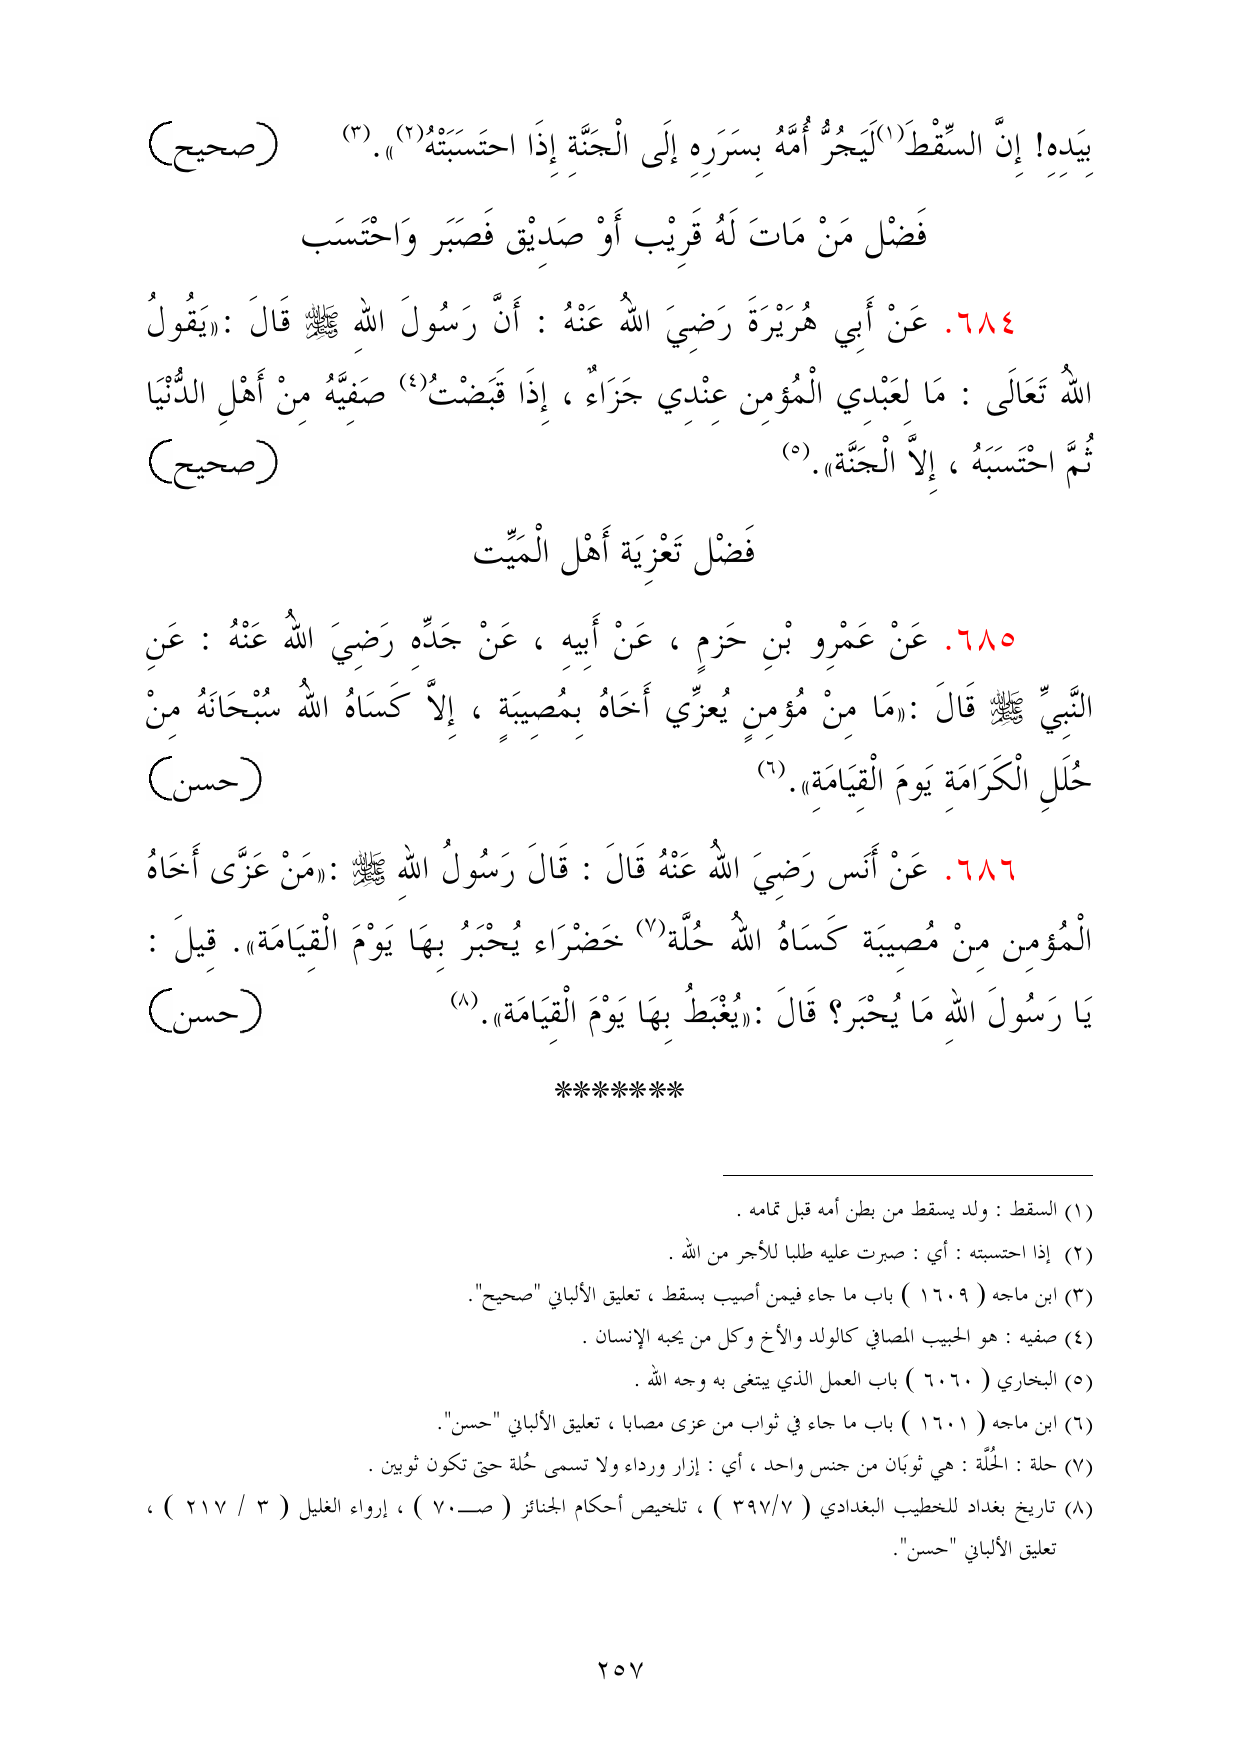 بِيَدِهِ! إِنَّ السِّقْطَ(١)لَيَجُرُّ أُمَّهُ بِسَرَرِهِ إِلَى الْجَنَّةِ إِذَا احتَسَبَتْهُ(٢)».(٣) (صحيح)
فَضْل مَنْ مَاتَ لَهُ قَرِيْب أَوْ صَدِيْق فَصَبَر وَاحْتَسَب
٦٨٤. عَنْ أَبِي هُرَيْرَةَ رَضِيَ اللهُ عَنْهُ : أَنَّ رَسُولَ اللهِ ﷺ قَالَ :«يَقُولُ
اللهُ تَعَالَى : مَا لِعَبْدِي الْمُؤمِن عِنْدِي جَزَاءٌ ، إِذَا قَبَضْتُ(٤) صَفِيَّهُ مِنْ أَهْلِ الدُّنْيَا
ثُمَّ احْتَسَبَهُ ، إِلاَّ الْجَنَّة».(٥) (صحيح)
فَضْل تَعْزِيَة أَهْل الْمَيِّت
٦٨٥. عَنْ عَمْرِو بْنِ حَزمٍ ، عَنْ أَبِيهِ ، عَنْ جَدِّهِ رَضِيَ اللهُ عَنْهُ : عَنِ
النَّبِيِّ ﷺ قَالَ :«مَا مِنْ مُؤمِنٍ يُعزِّي أَخَاهُ بِمُصِيبَةٍ ، إِلاَّ كَسَاهُ اللهُ سُبْحَانَهُ مِنْ
حُلَلِ الْكَرَامَةِ يَومَ الْقِيَامَةِ».(٦) (حسن)
٦٨٦. عَنْ أَنَس رَضِيَ اللهُ عَنْهُ قَالَ : قَالَ رَسُولُ اللهِ ﷺ :«مَنْ عَزَّى أَخَاهُ
الْمُؤمِن مِنْ مُصِيبَة كَسَاهُ اللهُ حُلَّة(٧) خَضْرَاء يُحْبَرُ بِهَا يَوْمَ الْقِيَامَة». قِيلَ :
يَا رَسُولَ اللهِ مَا يُحْبَر؟ قَالَ :«يُغْبَطُ بِهَا يَوْمَ الْقِيَامَة».(٨) (حسن)
*******
(١) السقط : ولد يسقط من بطن أمه قبل تمامه .
(٢) إذا احتسبته : أي : صبرت عليه طلبا للأجر من الله .
(٣) ابن ماجه ( ١٦٠٩ ) باب ما جاء فيمن أصيب بسقط ، تعليق الألباني "صحيح".
(٤) صفيه : هو الحبيب المصافي كالولد والأخ وكل من يحبه الإنسان .
(٥) البخاري ( ٦٠٦٠ ) باب العمل الذي يبتغى به وجه الله .
(٦) ابن ماجه ( ١٦٠١ ) باب ما جاء في ثواب من عزى مصابا ، تعليق الألباني "حسن".
(٧) حلة : الحُلَّة : هي ثوبَان من جنس واحد ، أي : إزار ورداء ولا تسمى حُلة حتى تكون ثوبين .
(٨) تاريخ بغداد للخطيب البغدادي ( ٣٩٧/٧ ) ، تلخيص أحكام الجنائز ( صـ٧٠ ) ، إرواء الغليل ( ٣ / ٢١٧ ) ،
تعليق الألباني "حسن".
٢٥٧